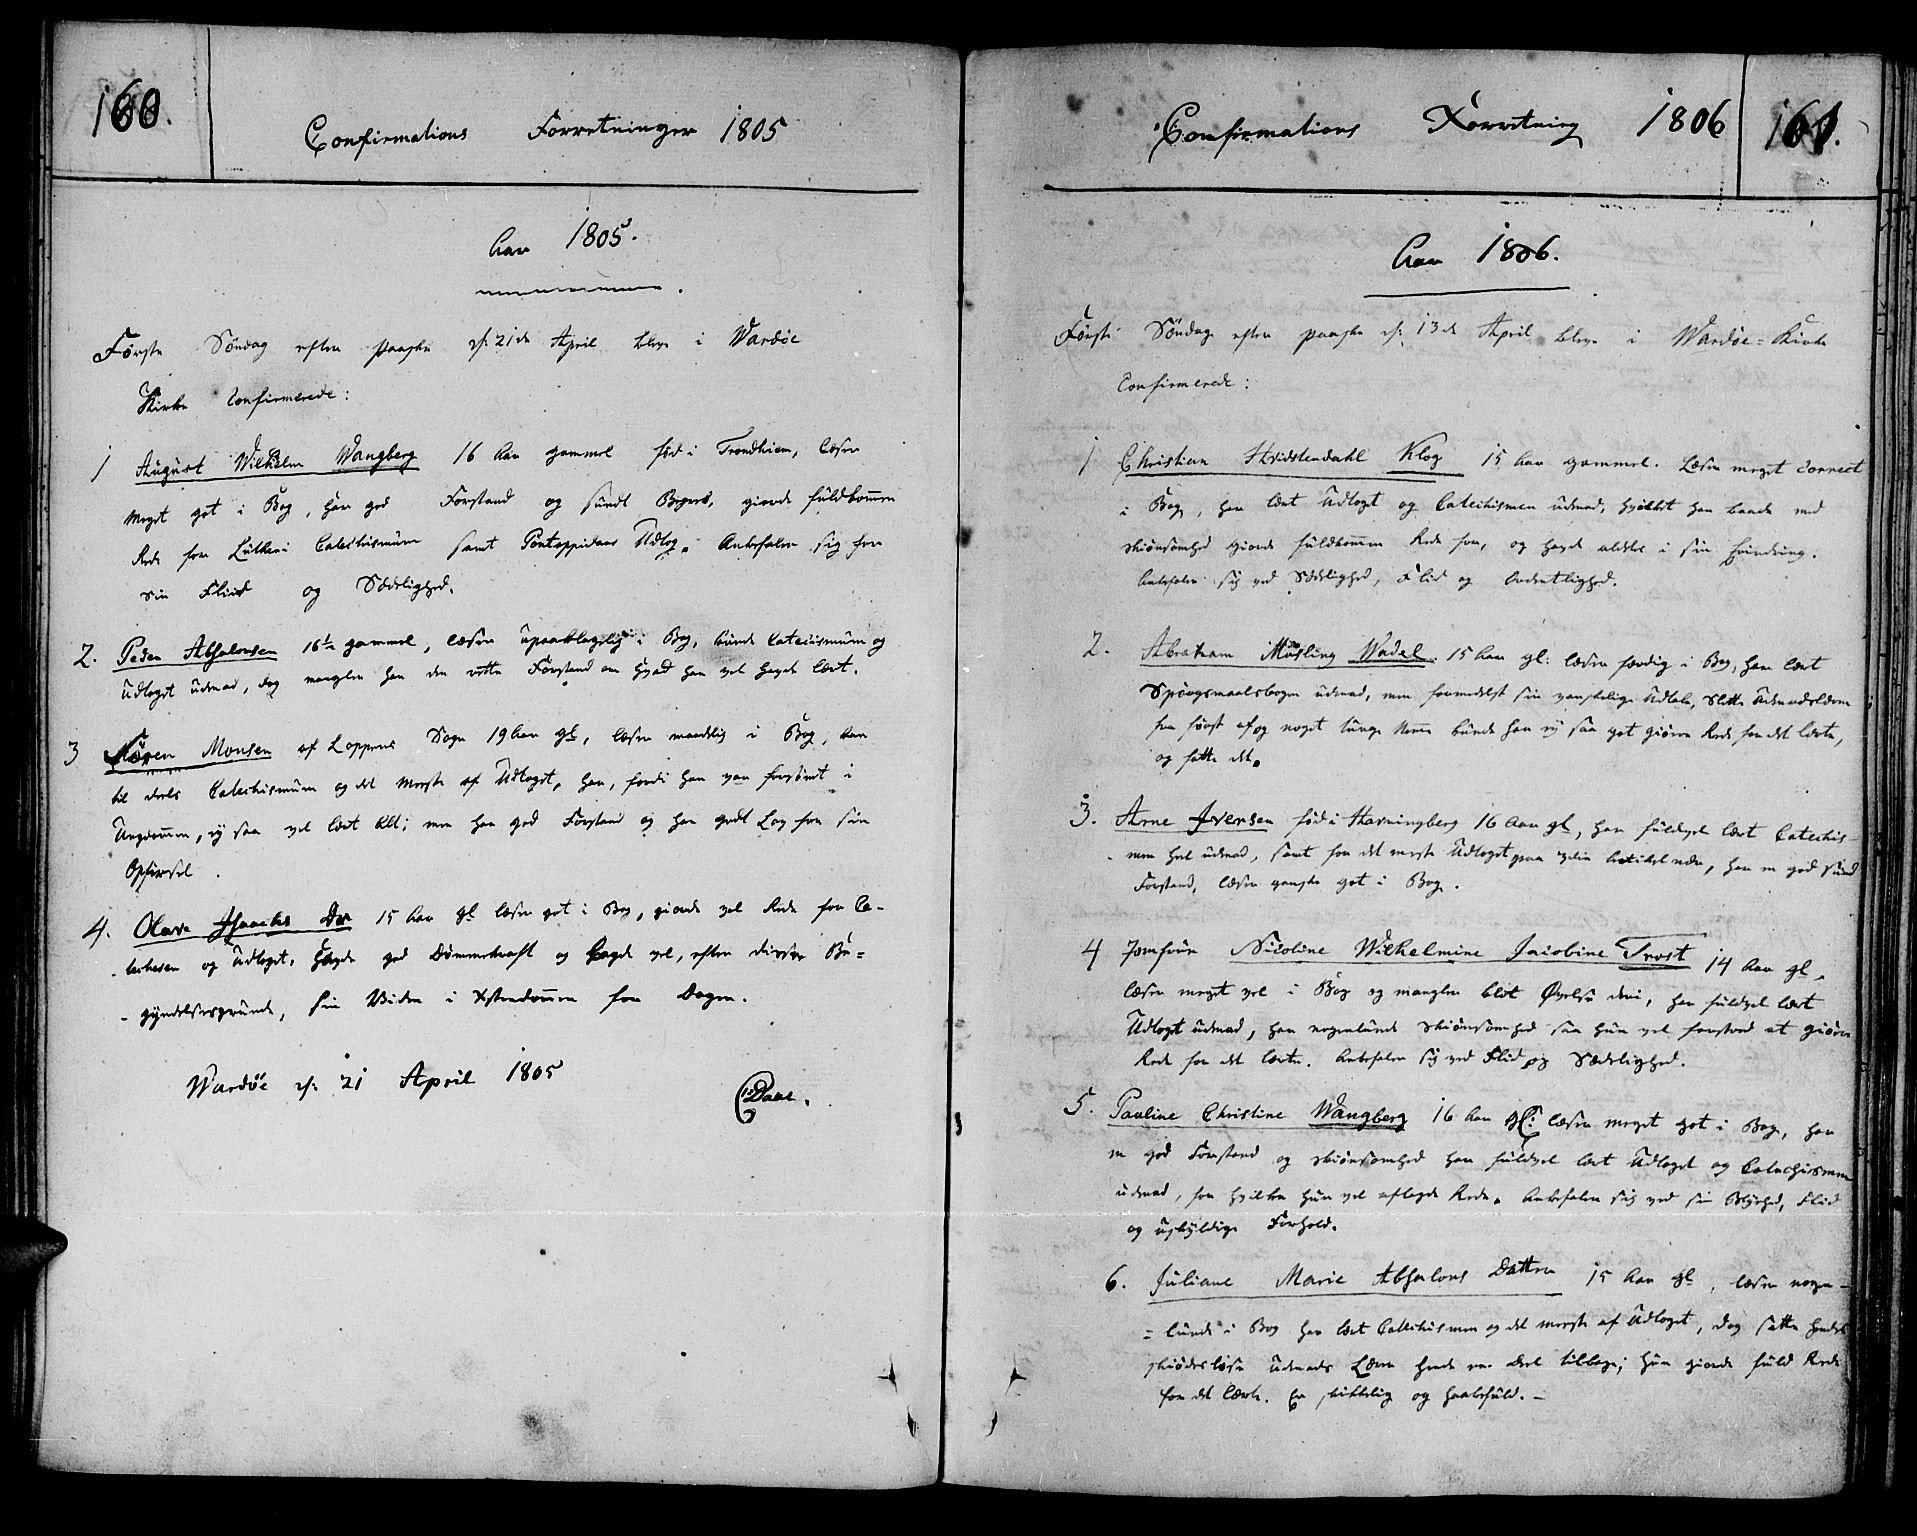 160.
Confirmations Forretninger 1805
Aar 1805.
Første Søndag efter paaske d: 21de April blev i Wardøe
Kirke Confirmerede:
1 August Wilhelm Wangberg 16 Aar gammel fød i Trondhiem, læser
meget got i Bog, har god Forstand og sundt Begreb, giorde fuldkommen
Rede for Lutheri Catechismum samt Pontoppidans Udlog. Anbefaler sig for
sin Fliid og Sædelighed.
2. Peder Absalonsen 16 Aar gammel, læser upaaklagelig i Bog, kunde Catechismum og
Udtoget udenad, dog mangler han den rette Forstand om hvad han vel havde lært.
3 Søren Monsen af Loppens Sogn 19 Aar gl, læser maadelig i Bog, kan
til deels Catechismum og det meeste af Udtoget, har, fordi han var forsømt i
Ungdommen, ej saa vel lært Alt; men har god Forstand og har godt Lov for sin
Opførsel.
4. Olava Isaachs Dr 15 Aar gl læser got i Bog, giorde vel Rede for Ca-
-techesen og Udtoget. Havde god Dømmekraft og lagde vel, efter disse Be=
-gyndelsesgrunde, sin Viden i Xstendommen for Dagen.
Wardøe d: 21 April 1805
Daae.
Confirmations Forretning 1806
161.
Aar 1806.
Første Søndag efter paaske d: 13de April blev i Wardøe=Kirke
Confirmerede:
1 Christian Hvidstendahl Klog 15 Aar gammel. Læser meget correct
i Bog, har lært Udtoget og Catechismen udenad, hvilket han baade med
skiønsomhed giorde fuldkommen Rede for, og havde aldeles i sin Erindring.
Anbefaler sig ved Sædelighed, Flid og Ordentlighed.
2. Abraham Müsling Wadel. 15 Aar gl: læser færdig i Bog, har lært
Spørgsmaalsbogen udenad, men formedelst sin vanskelige Udtale, slette Udenadslæren
fra først af og noget tunge Nemme kunde han ej saa got giøre Rede for det lærte,
og fatte det.
3. Arne Iversen fød i Havningberg 16 Aar gl, har fuldvel lært Catechis-
-men heel udenad, samt for det meste Udtoget paa Artikel nær, har en god sund
Forstand, læser ganske got i Bog.
4 Jomfrue Nicoline Wilhelmine Jacobine Trost 14 Aar gl,
læser meget vel i Bog og mangler blot Øvelse deri, har fuldvel lært
Udtoget udenad, har nogenlunde skiønsomhed saa hun vel forstod at giøre
Rede for det lærte. Anbefaler sig ved Flid og Sædelighed.
5. Pauline Christine Wangberg 16 Aar gl: læser meget got i Bog, har
en god Forstand og skiønsomhed har fuldvel lært Udtoget og Catechismen
udenad, for hvilke hun vel aflagde Rede. Anbefaler sig ved sin Flid
og uskyldige Forhold.
6. Juliane Marie Absalons Datter 15 Aar gl, læser nogen-
=lunde i Bog har lært Catechismen og det meeste af Udtoget, dog satte hendes
skiødesløse Udenads Læren hende en Deel tilbage; hun giorde fuld Rede
for det lærte. Er skikkelig og haabefuld. -